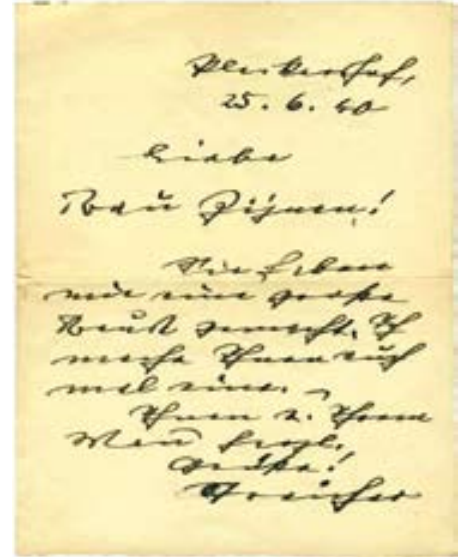 Pleikershof,
25. 6. 40
Liebe
Frau
Sie haben
mir eine große
Freude gemacht. Ich
mache Ihnen auch
mal eine.
Ihnen u. Ihrem
Mann herzl.
Grüße!
Streicher